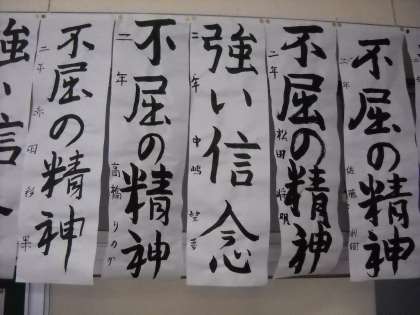 不屈の精神
二年 佐藤
不屈の精神
二年 松田
強い信念
二年 中嶋
不屈の精神
二年 高橋
不屈の精神
二年 赤羽
強い信念